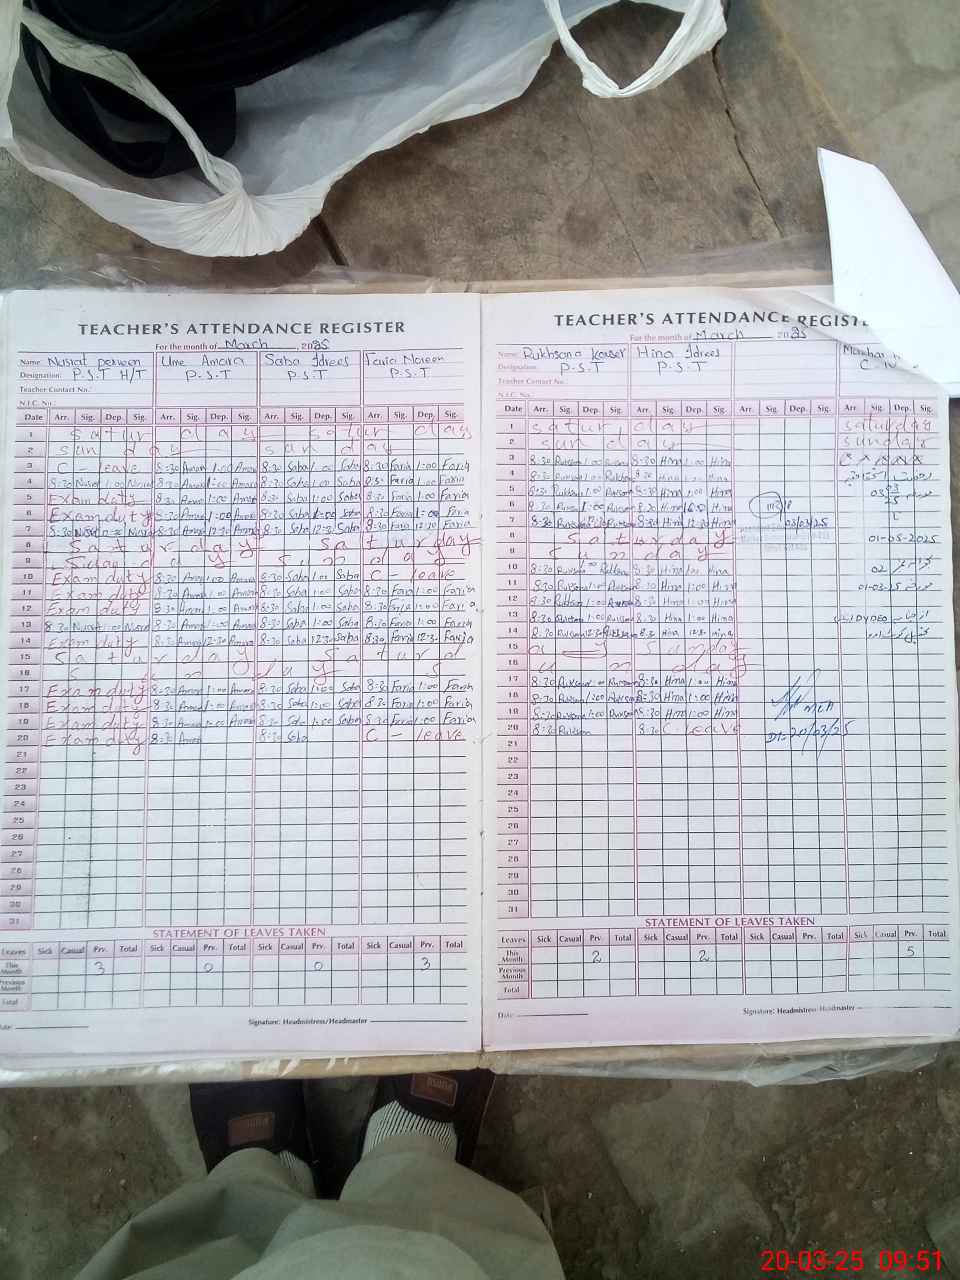 TEACHER'S ATTENDANCE REGISTER
For the month of March, 2025
Name: Nusrat perveen Ume Amara Saba Idrees Faria Noreen
Designation: P.S.T H/T P.S.T P.S.T P.S.T
Teacher Contact No.:
N.I.C. No.:
Date Arr. Sig. Dep. Sig. Arr. Sig. Dep. Sig. Arr. Sig. Dep. Sig. Arr. Sig. Dep. Sig.
1 satur day satur day
2 sun day sun day
3 C - leave 8:30 Amara 1:00 Amara 8:30 Saba 1:00 Saba 8:30 Faria 1:00 Faria
4 8:30 Nusrat 1:00 Nusrat 8:30 Amara 1:00 Amara 8:30 Saba 1:00 Saba Faria 1:00 Faria
5 Exam duty 8:30 Amara 1:00 Amara 8:30 Saba 1:00 Saba 8:30 Faria 1:00 Faria
6 Exam duty 8:30 Amara 1:00 Amara 8:30 Saba 1:00 Saba 8:30 Faria 1:00 Faria
7 8:30 Nusrat Nusrat 8:30 Amara 12:30 Amara 8:30 Saba 12:30 Saba 8:30 Faria 12:30 Faria
8 Satur day Satur day
9 Sunday Sunday
10 Exam duty 8:30 Amara 1:00 Amara 8:30 Saba 1:00 Saba C - leave
11 Exam duty 8:30 Amara 1:00 Amara 8:30 Saba 1:00 Saba 8:30 Faria 1:00 Faria
12 Exam duty 8:30 Amara 1:00 Amara 8:30 Saba 1:00 Saba 8:30 Faria 1:00 Faria
13 8:30 Nusrat 1:00 Nusrat 8:30 Amara 1:00 Amara 8:30 Saba 1:00 Saba 8:30 Faria 1:00 Faria
14 Exam duty 8:30 Amara 12:30 Amara 8:30 Saba 12:30 Saba 8:30 Faria 12:30 Faria
15 Satur day Saturd
16 S u n day S
17 Exam duty 8:30 Amara 1:00 Amara 8:30 Saba 1:00 Saba 8:30 Faria 1:00 Faria
18 Exam duty 8:30 Amara 1:00 Amara 8:30 Saba 1:00 Saba 8:30 Faria 1:00 Faria
19 Exam duty 8:30 Amara 1:00 Amara 8:30 Saba 1:00 Saba 8:30 Faria 1:00 Faria
20 Exam duty 8:30 Amara 8:30 Saba C - leave
21
22
23
24
25
26
27
28
29
30
31
STATEMENT OF LEAVES TAKEN
Leaves Sick Casual Prv. Total Sick Casual Prv. Total Sick Casual Prv. Total Sick Casual Prv. Total
This Month 3 0 0 3
Previous Month
Total
Date: Signature: Headmistress/Headmaster
TEACHER'S ATTENDANCE REGISTE
For the month of March, 2025
Name: Rukhsana Kouser Hina Idrees
Designation: P.S.T P.S.T
Teacher Contact No.:
N.I.C. No.:
Date Arr. Sig. Dep. Sig. Arr. Sig. Dep. Sig. Arr. Sig. Dep. Sig. Arr. Sig. Dep. Sig.
1 satur day saturday
2 sun day sunday
3 8:30 Ruksana 1:00 Ruksana 8:30 Hina 1:00 Hina
4 8:30 Ruksana 1:00 Ruksana 8:30 Hina 1:00 Hina
5 8:30 Ruksana 1:00 Ruksana 8:30 Hina 1:00 Hina
6 8:30 Ruksana 1:00 Ruksana 8:30 Hina Hina
7 8:30 Ruksana 12:30 Ruksana 8:30 Hina 12:30 Hina 03/03/25
8 Saturday 01-05-2025
9 Sunday
10 8:30 Ruksana 1:00 Ruksana 8:30 Hina 1:00 Hina 02
11 8:30 Ruksana 1:00 Ruksana 8:30 Hina 1:00 Hina 01-03-25
12 8:30 Ruksana 1:00 Ruksana 8:30 Hina 1:00 Hina
13 8:30 Ruksana 1:00 Ruksana 8:30 Hina 1:00 Hina DYDEO
14 8:30 Ruksana 12:30 Ruksana 8:30 Hina 12:30 Hina
15 ay Sunday
16 u n day
17 8:30 Ruksana 1:00 Ruksana 8:30 Hina 1:00 Hina
18 8:30 Ruksana 1:00 Ruksana 8:30 Hina 1:00 Hina
19 8:30 Ruksana 1:00 Ruksana 8:30 Hina 1:00 Hina
20 8:30 Ruksana 8:30 C - leave Dt-20/03/25
21
22
23
24
25
26
27
28
29
30
31
STATEMENT OF LEAVES TAKEN
Leaves Sick Casual Prv. Total Sick Casual Prv. Total Sick Casual Prv. Total Sick Casual Prv. Total
This Month 2 2 5
Previous Month
Total
Date: Signature: Headmistress/Headmaster
20-03-25 09:51